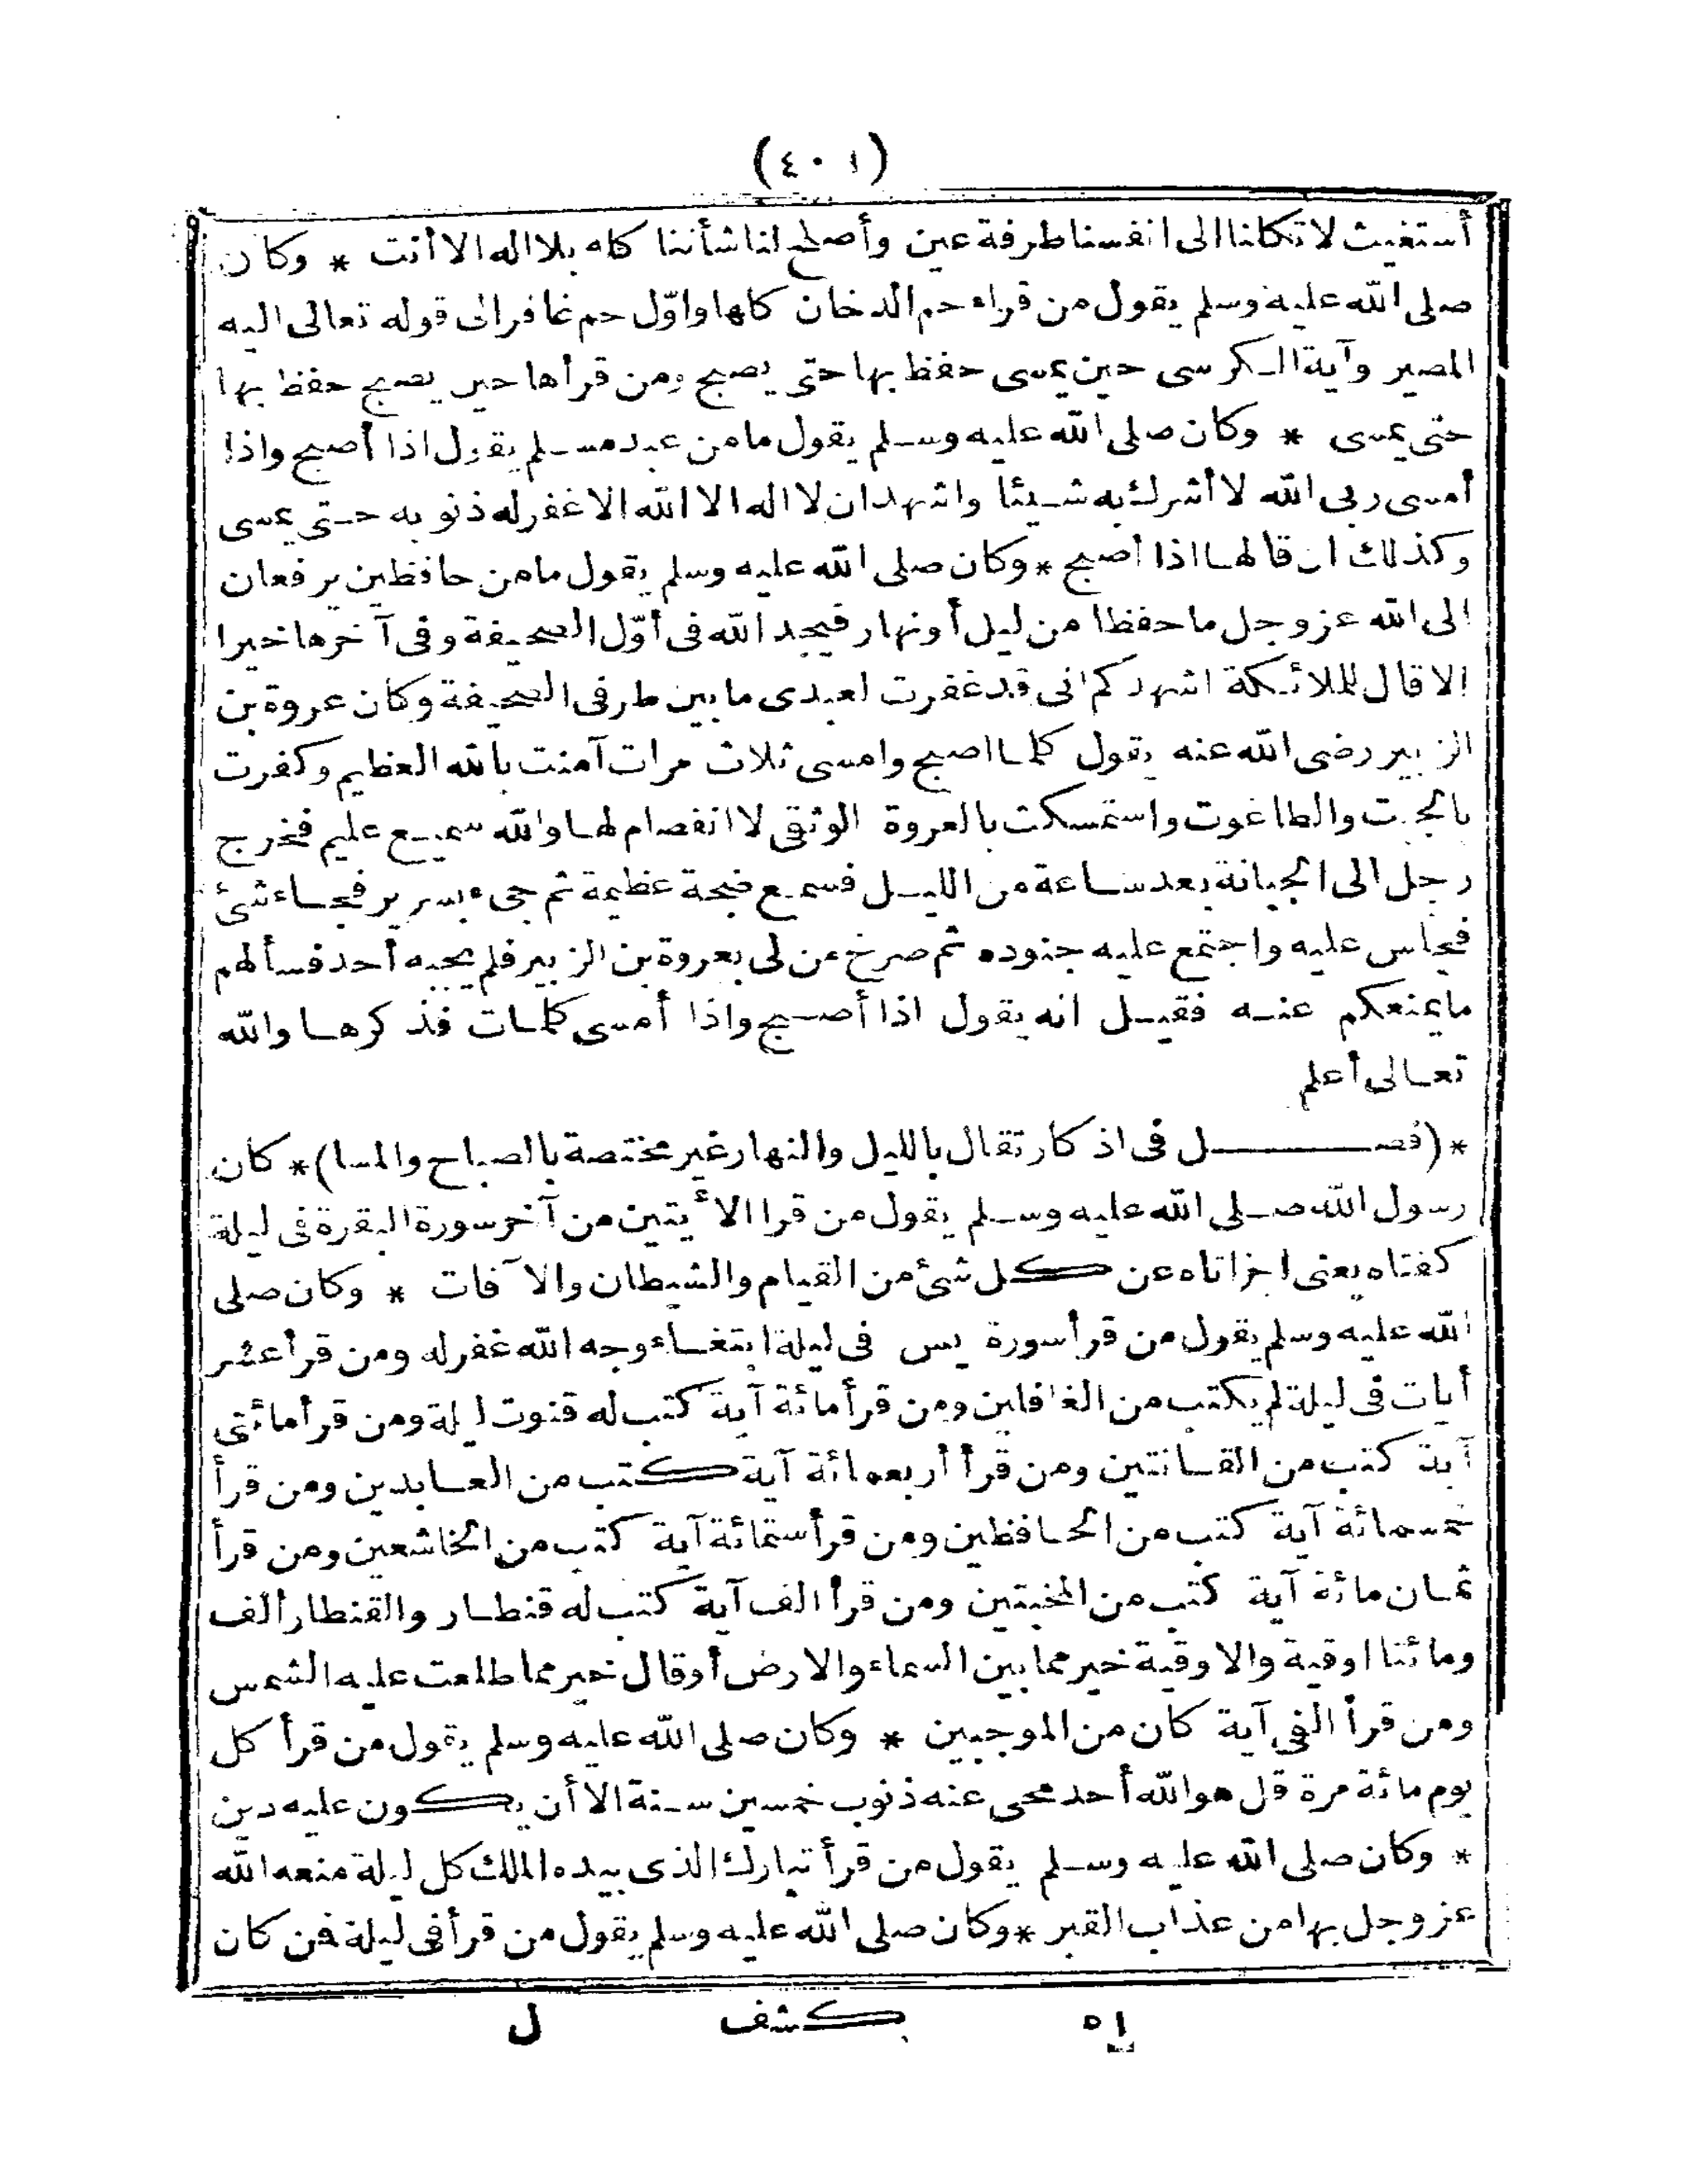 (٤٠١)
أستغيث لا تكلنا الى انفسنا طرفة عين وأصلح لنا شأننا كله بلا اله الا أنت * وكان
صلى الله عليه وسلم يقول من قراء حم الدخان كلها واوّل حم غافر الى قوله تعالى اليه
المصير وآية الكرسى حين يمسى حفظ بها حتى يصبح ومن قرأها حين يصبح حفظ بها
حتى يمسى * وكان صلى الله عليه وسلم يقول ما من عبد مسلم يقول اذا أصبح واذا
أمسى ربى الله لا أشرك به شيئا واشهد ان لا اله الا الله الا غفر له ذنوبه حتى يمسى
وكذلك ان قالها اذا أصبح * وكان صلى الله عليه وسلم يقول ما من حافظين يرفعان
الى الله عز وجل ما حفظا من ليل أو نهار فيجد الله فى أوّل الصحيفة وفى آخرها خيرا
الا قال للملائكة اشهدكم انى قد غفرت لعبدى ما بين طرفى الصحيفة وكان عروة بن
الزبير رضى الله عنه يقول كلما اصبح وامسى ثلاث مرات آمنت بالله العظيم وكفرت
بالجبت والطاغوت واستمسكت بالعروة الوثقى لا انفصام لها والله سميع عليم فخرج
رجل الى الجبانة بعد ساعة من الليل فسمع ضجة عظيمة ثم جىء بسرير فجاء شئ
فجلس عليه واجتمع عليه جنوده ثم صرخ من لى بعروة بن الزبير فلم يجبه أحد فسألهم
ما يمنعكم عنه فقيل انه يقول اذا أصبح واذا أمسى كلمات فذكرها والله
تعالى أعلم
* (فصل فى اذكار تقال بالليل والنهار غير مختصة بالصباح والمسا) * كان
رسول الله صلى الله عليه وسلم يقول من قرا الأيتين من آخر سورة البقرة فى ليلة
كفتاه يعنى اجزاتاه عن كل شئ من القيام والشيطان والآفات * وكان صلى
الله عليه وسلم يقول من قرأ سورة يس فى ليلة ابتغاء وجه الله غفر له ومن قرأ عشر
أيات فى ليلة لم يكتب من الغافلين ومن قرأ مائة آية كتب له قنوت ليلة ومن قرأ مائتى
آية كتب من القانتين ومن قرأ أربعمائة آية كتب من العابدين ومن قرأ
خمسمائة آية كتب من الحافظين ومن قرأ ستمائة آية كتب من الخاشعين ومن قرأ
ثمان مائة آية كتب من المخبتين ومن قرأ الف آية كتب له قنطار والقنطار ألف
ومائتا اوقية والاوقية خير مما بين السماء والارض أو قال خير مما طلعت عليه الشمس
ومن قرأ الفى آية كان من الموجبين * وكان صلى الله عليه وسلم يقول من قرأ كل
يوم مائة مرة قل هو الله أحد محى عنه ذنوب خمسين سنة الا أن يكون عليه دين
* وكان صلى الله عليه وسلم يقول من قرأ تبارك الذى بيده الملك كل ليلة منعه الله
عز وجل بها من عذاب القبر * وكان صلى الله عليه وسلم يقول من قرأ فى ليلة فمن كان
٥١ كشف ل